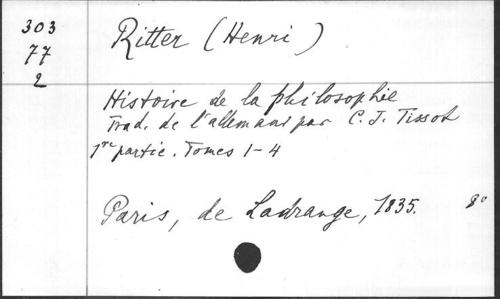 303
77
2
Ritter (Henri)
Histoire de la philosophie
Trad. de l'allemand par C. J. Tissot
1re partie. Tomes 1-4
Paris, de Ladrange, 1835. 8°